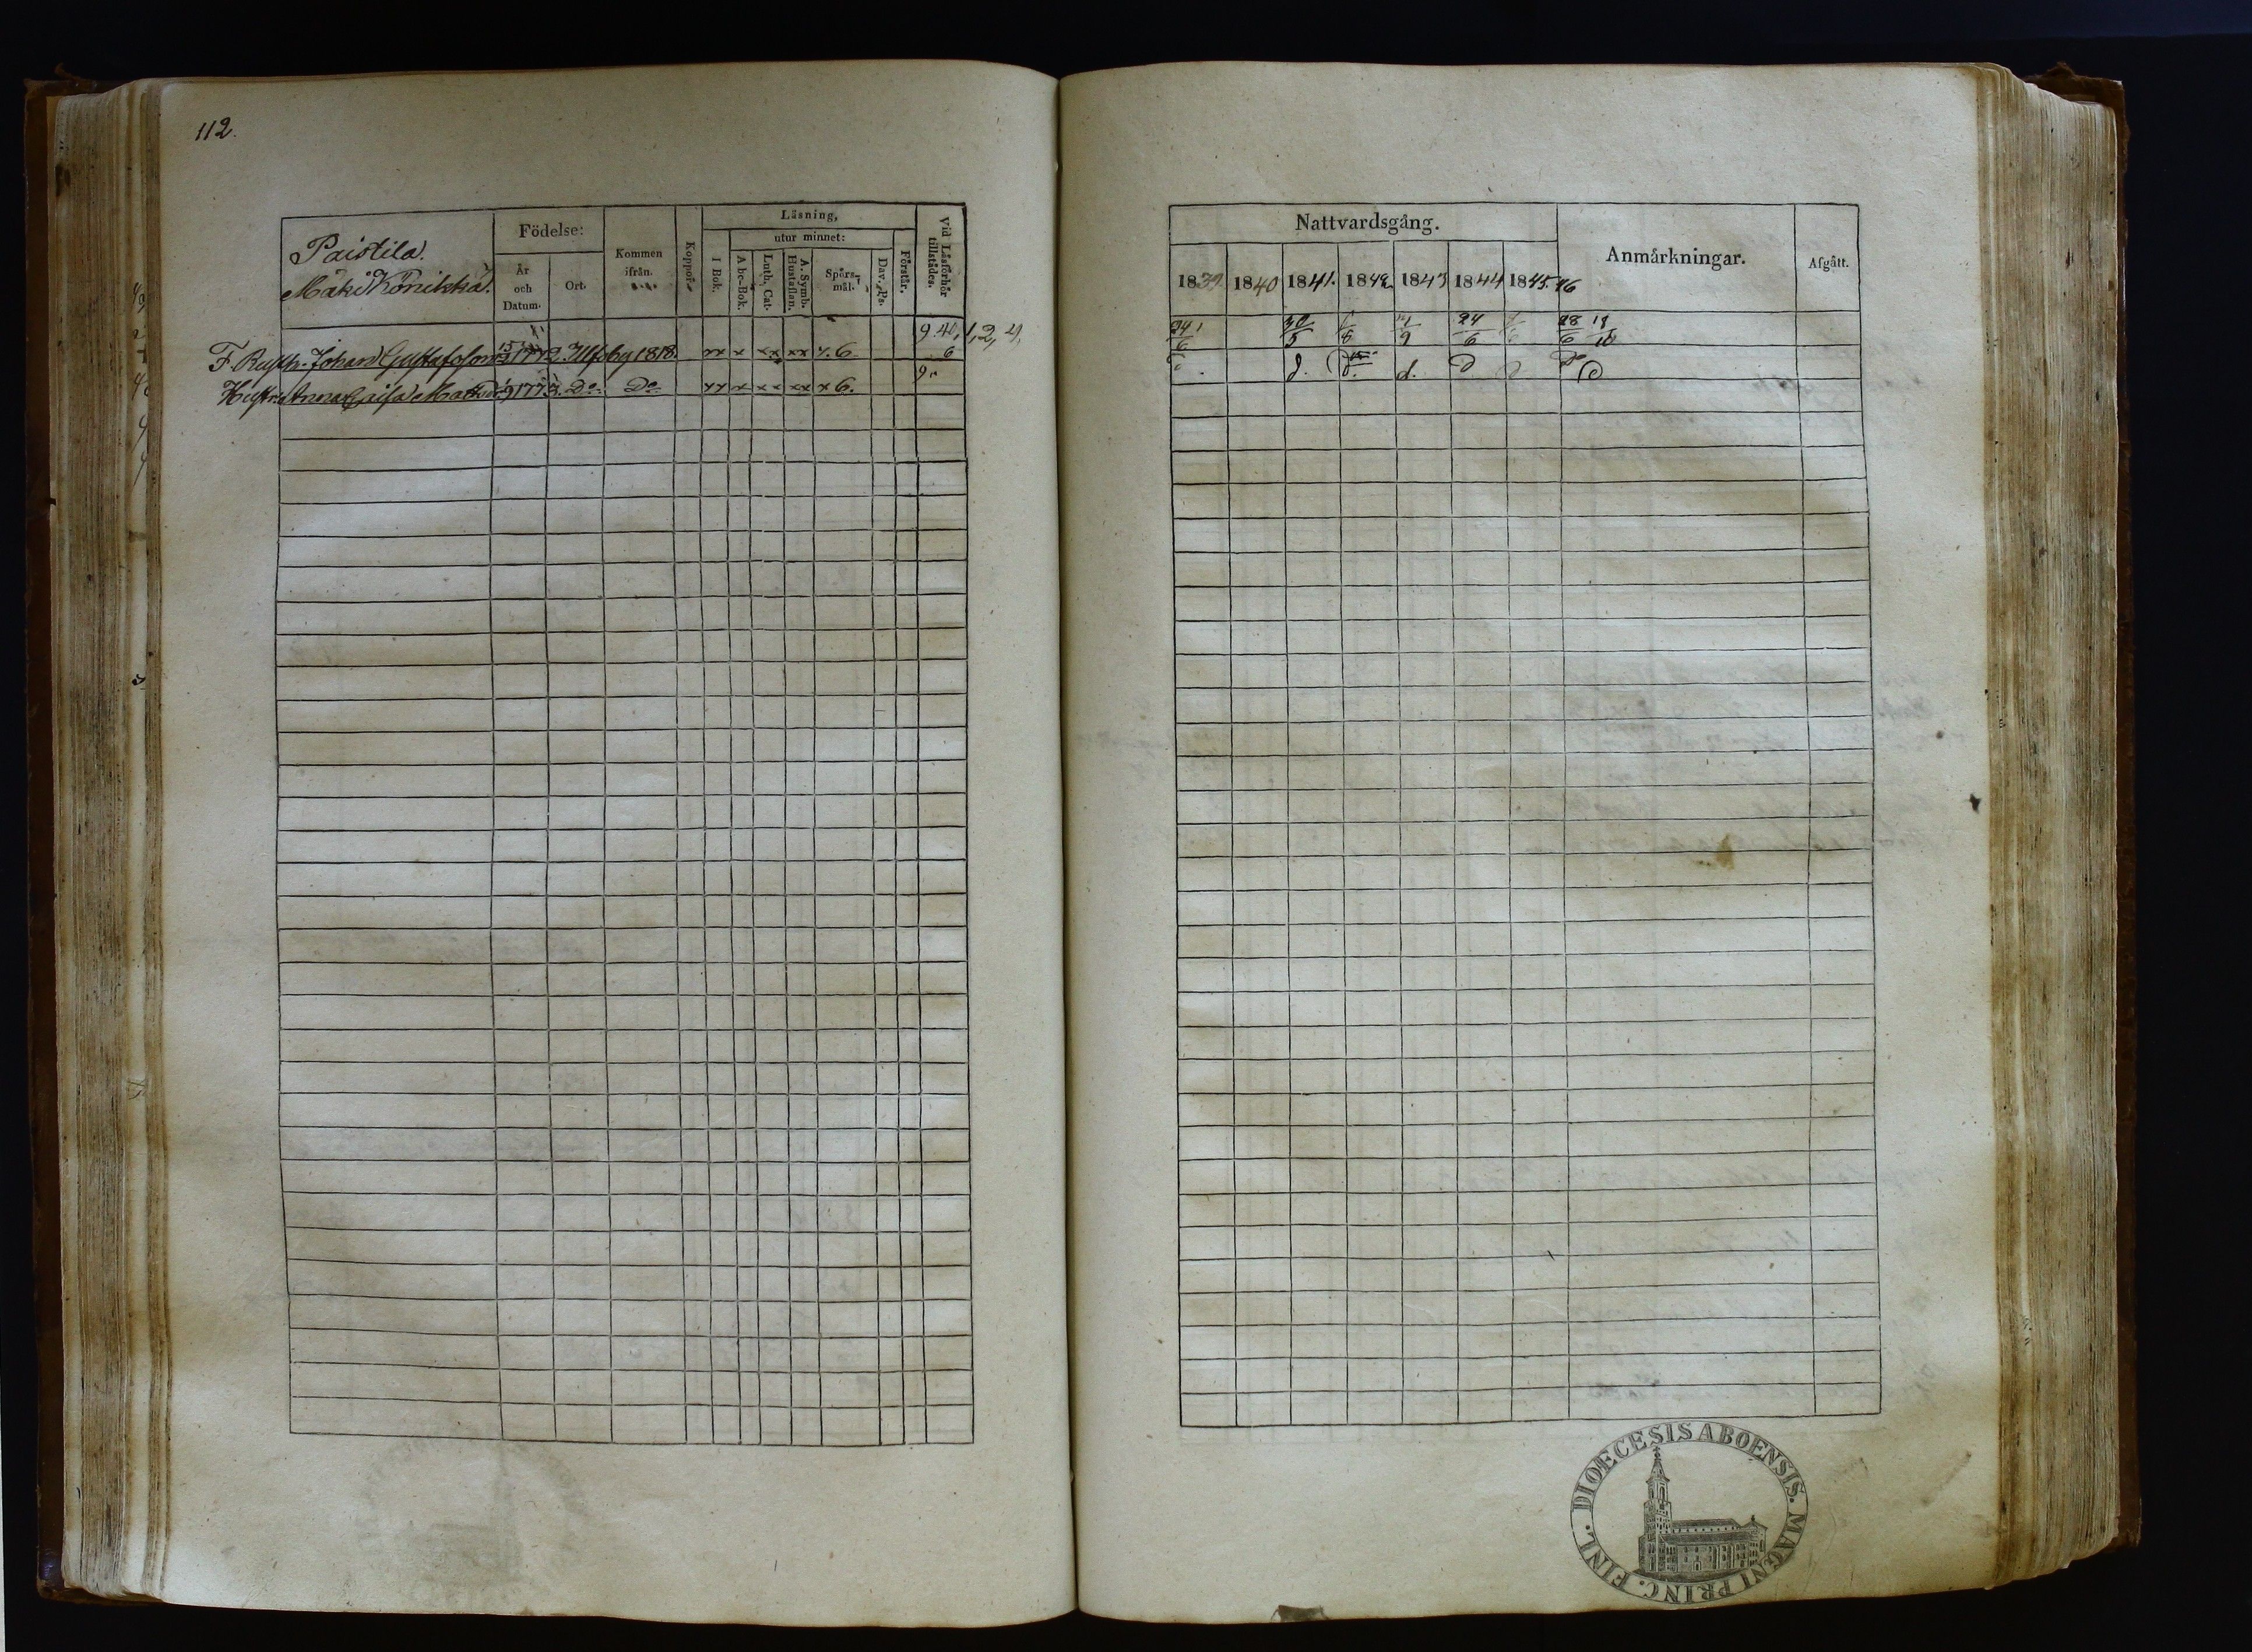 112.
Paistila.
Mäki Könikkä.
Födelse:
År och Datum.
Ort.
Kommen ifrån.
Koppor.
Läsning,
I Bok.
utur minnet:
Abc-Bok.
Luth. Cat.
A. Symb. Hustaflan.
Spörsmål.
Dav. Ps.
Förstår.
Vid Läsförhör tillstädes.
F. Rusth. Johan Gustafsson 1772. Ulfsby 1818. xx x xx xx x. 6. 9. 40, 1, 2, 4,
6
Hustr. Anna Caisa 1773. Do Do xx x xx xx x 6.
Nattvardsgång.
1839 1840 1841. 1842 1843 1844 1845. 46
Anmärkningar.
Afgått.
24/6 30/5 24/6 28/6 18/10
d. d.
FINL. DIOECESIS ABOENSIS. MAGNI PRINC.